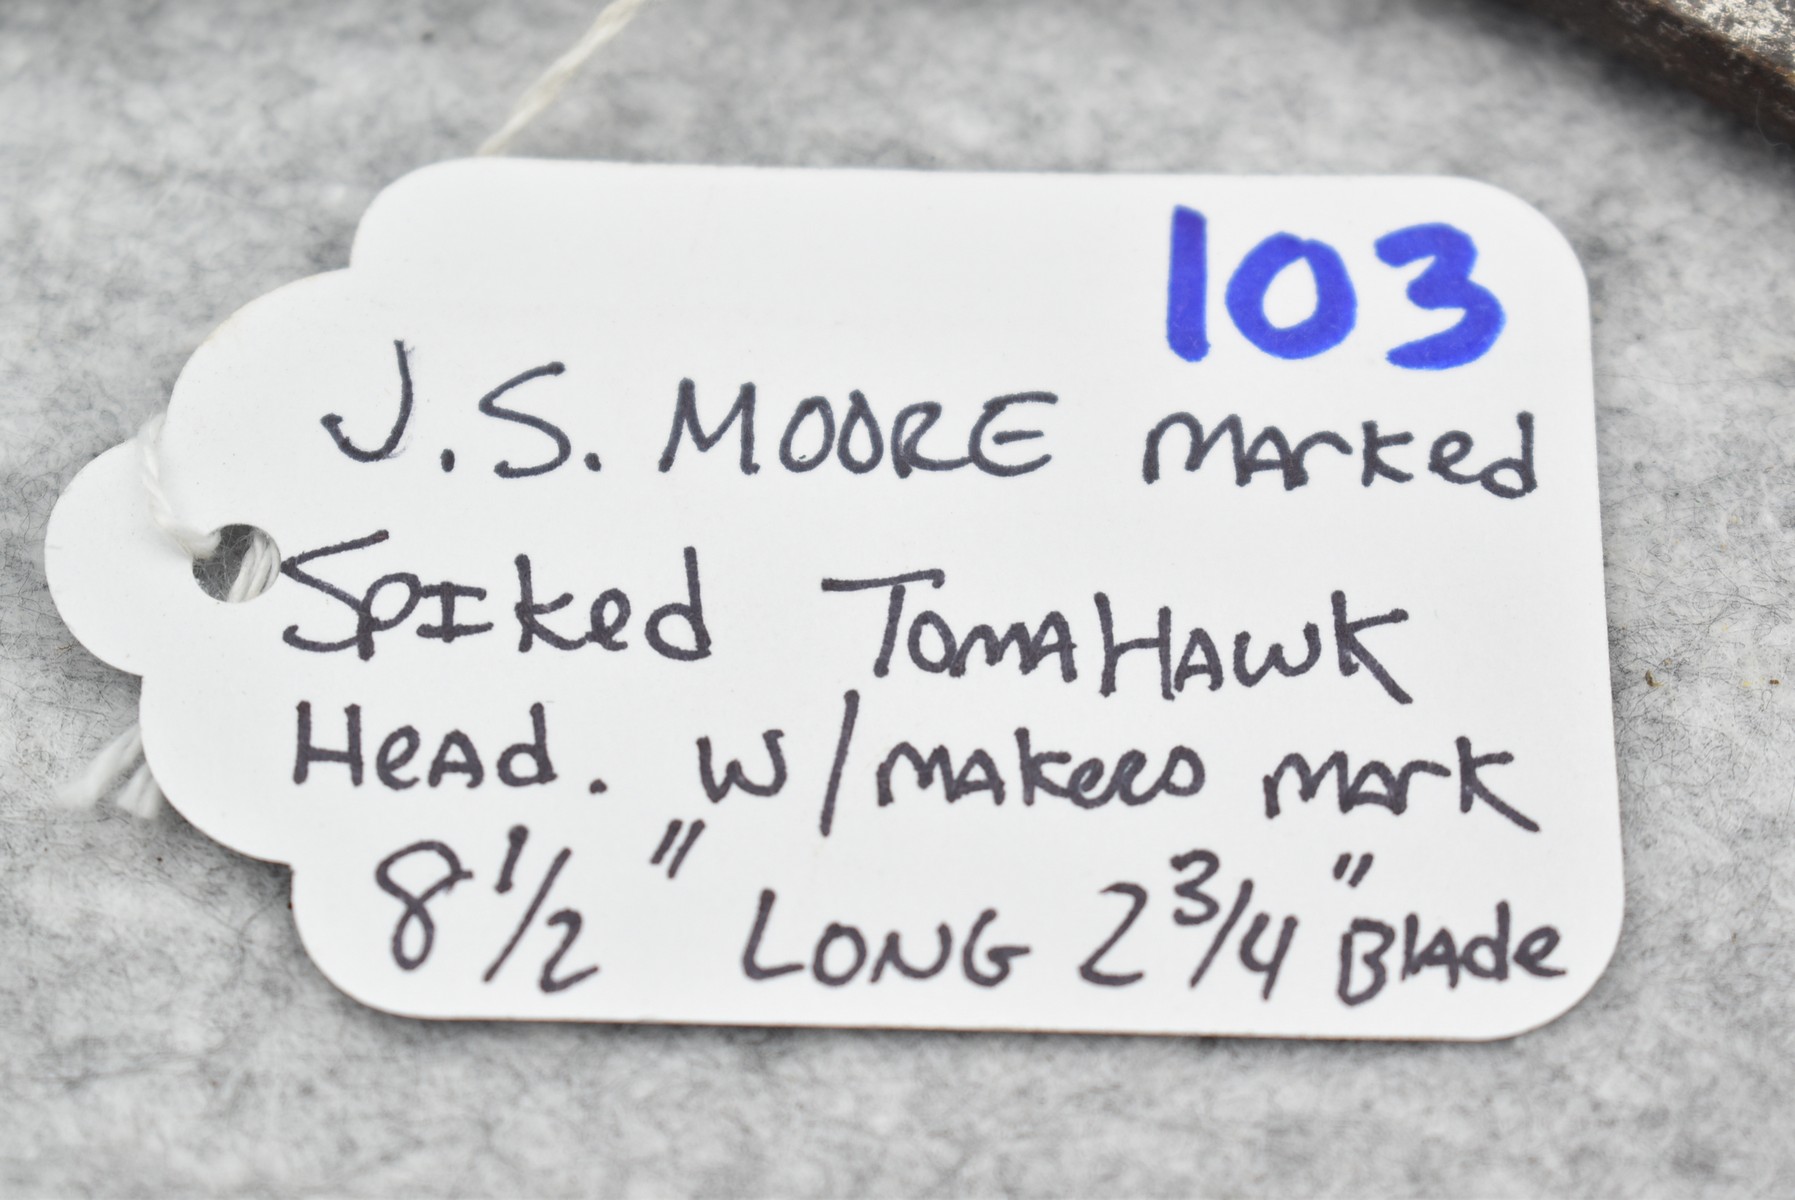 103
J.S. MOORE marked
Spiked TomaHawk
Head. w/makers mark
8 1/2" LONG 2 3/4" Blade